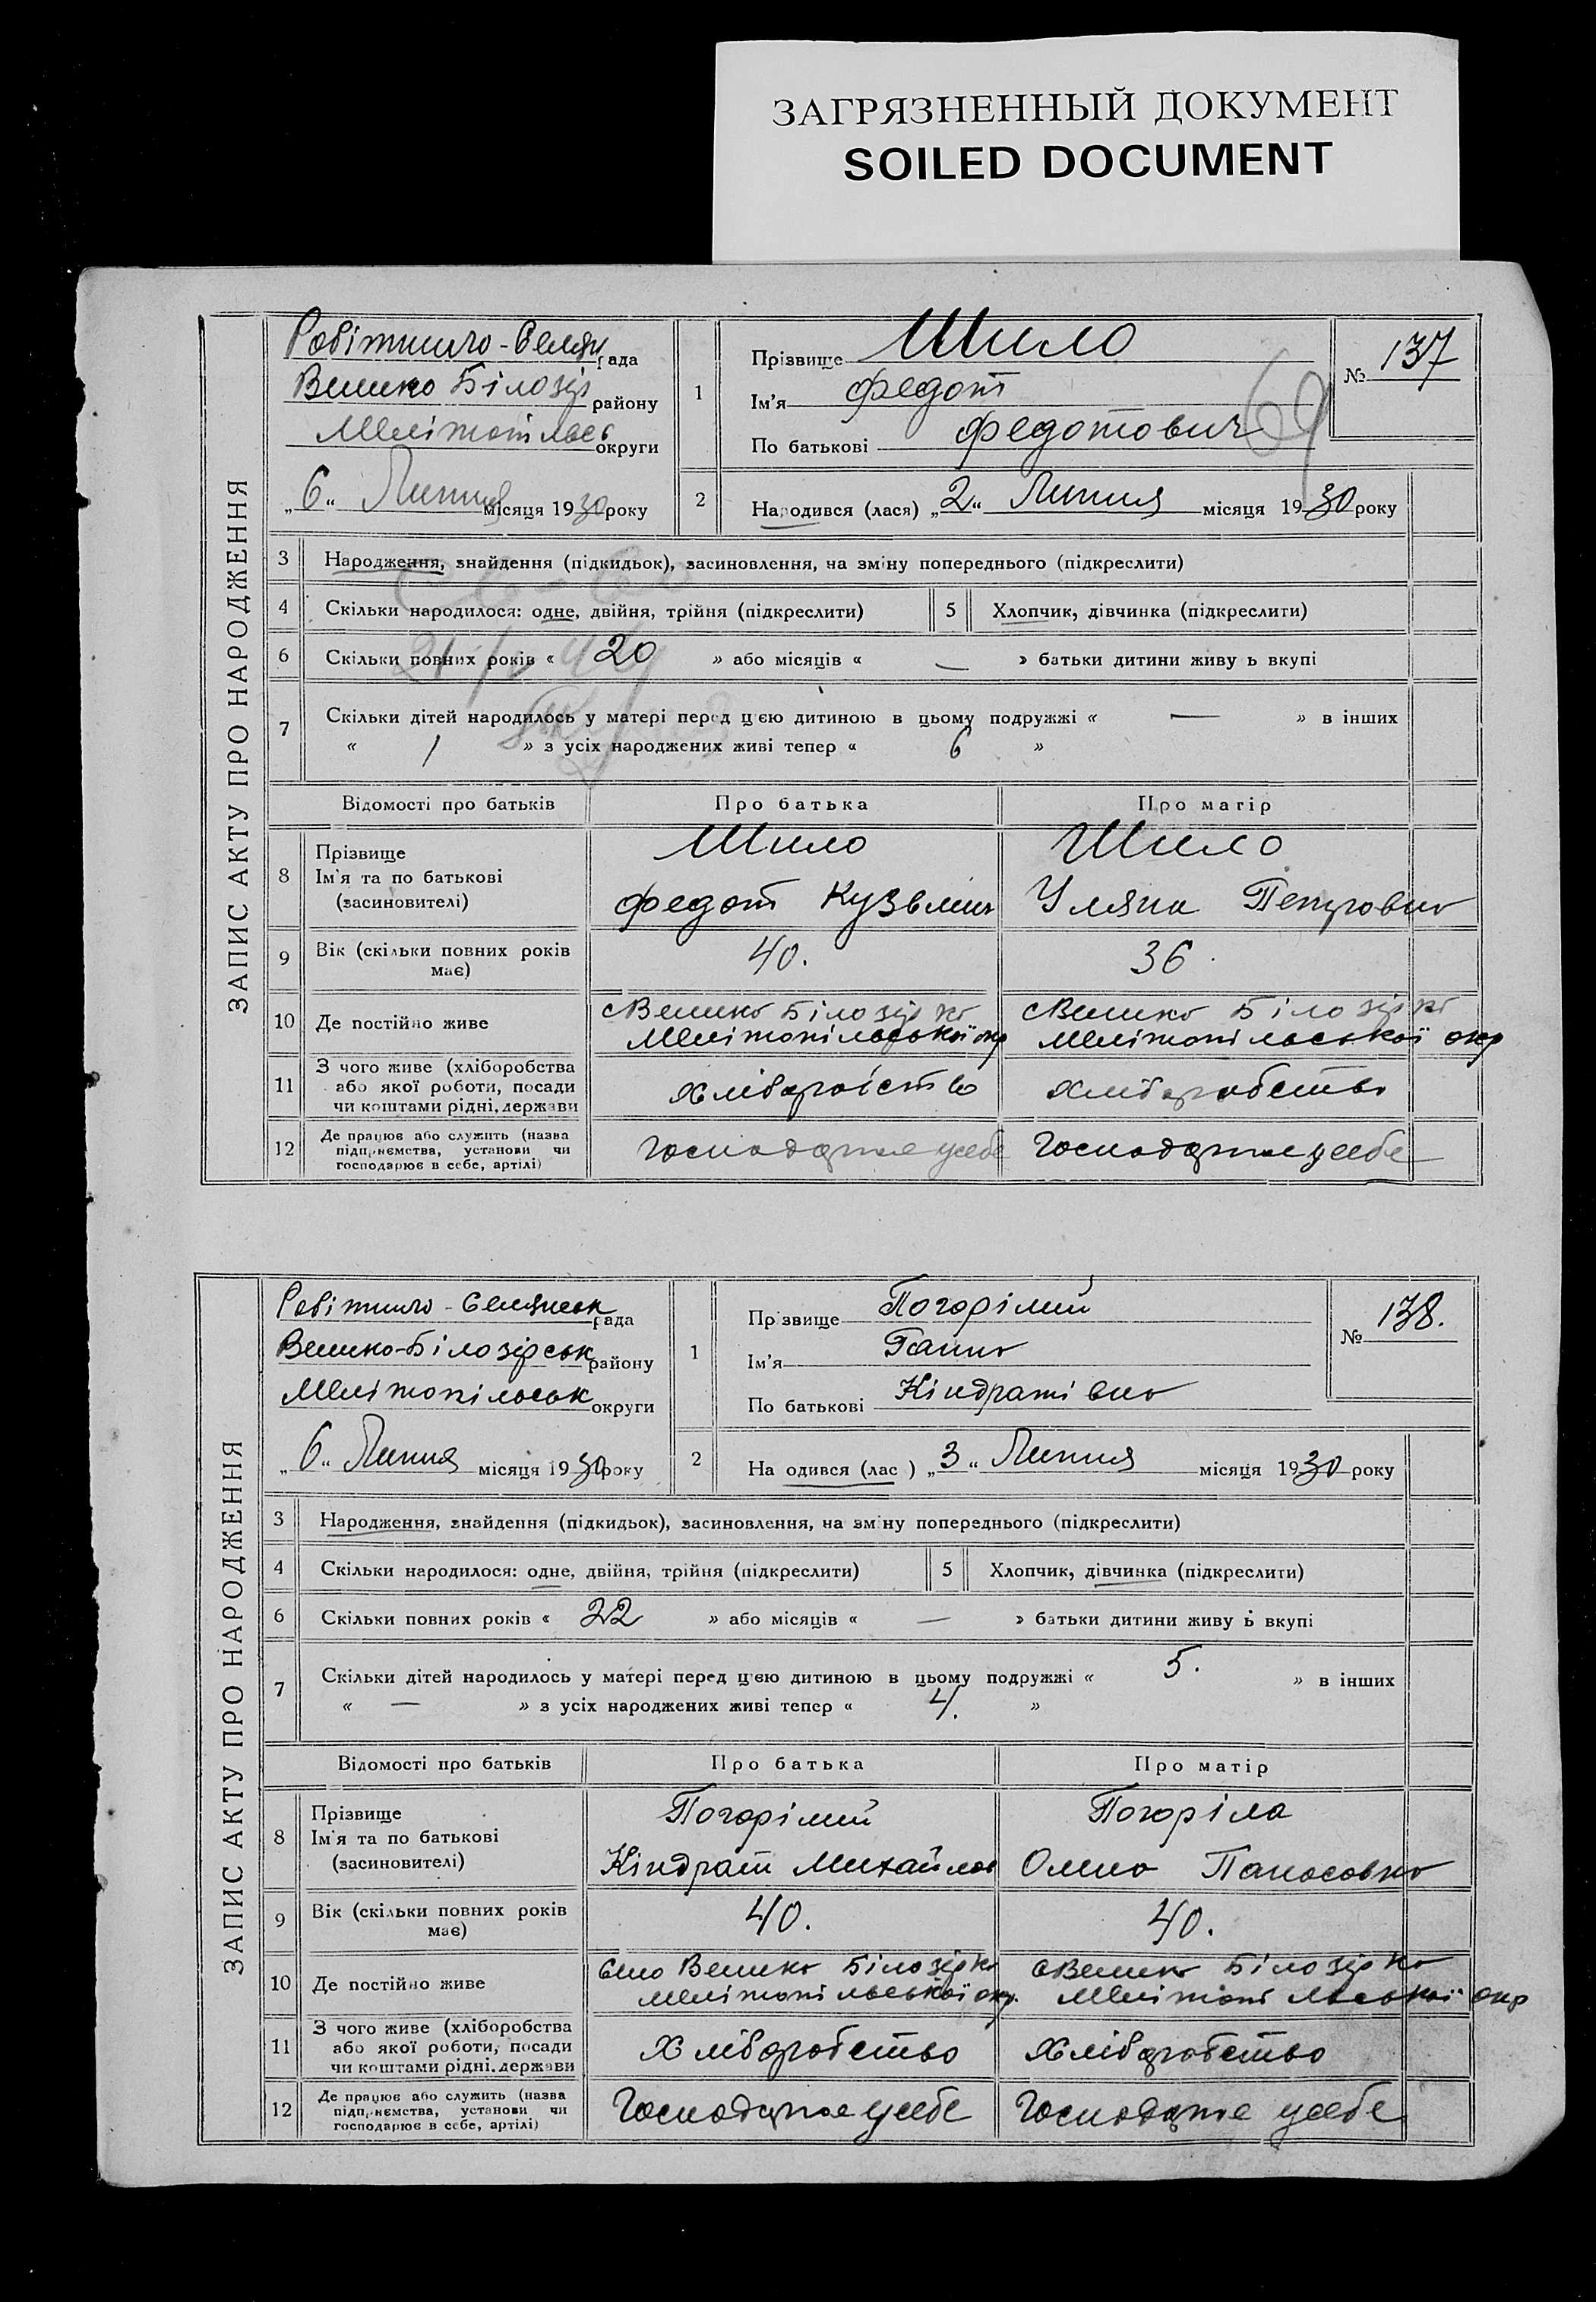 ЗАГРЯЗНЕННЫЙ ДОКУМЕНТ
SOILED DOCUMENT
ЗАПИС АКТУ ПРО НАРОДЖЕННЯ
Робітничо-Селян рада
Велико Білозір району
Мелітопільсь округи
„6“ Липня місяця 1930 року
1
Прізвище Шило
Ім'я Федот
По батькові Федотович
№ 137
69
2
Народився (лася) „2“ Липня місяця 1930 року
3 Народження, знайдення (підкидьок), засиновлення, на зміну попереднього (підкреслити)
4 Скільки народилося: одне, двійня, трійня (підкреслити)
5 Хлопчик, дівчинка (підкреслити)
6 Скільки повних років « 20 » або місяців « — » батьки дитини живу ь вкупі
7 Скільки дітей народилось у матері перед цією дитиною в цьому подружжі « — » в інших
« 1 » з усіх народжених живі тепер « 6 »
Відомості про батьків Про батька Про матір
8 Прізвище
Ім'я та по батькові
(засиновителі)
Шило
Федот Кузьмич
Шило
Уляна Петровна
9 Вік (скільки повних років
має)
40.
36
10 Де постійно живе
с Велико Білозірка
Мелітопільської окр
с Велико Білозірка
Мелітопільської окр
11 З чого живе (хліборобства
або якої роботи, посади
чи коштами рідні, держави
Хліборобство
Хліборобство
12 Де працює або служить (назва
підприємства, установи чи
господарює в себе, артілі)
Господарює у себе
Господарює у себе
ЗАПИС АКТУ ПРО НАРОДЖЕННЯ
Робітничо-Селянськ рада
Велико-Білозірськ району
Мелітопільськ округи
„6“ Липня місяця 1930 року
1
Пр звище Погорілий
Ім'я Ганна
По батькові Кіндратівна
№ 138.
2
На одився (лас ) „3“ Липня місяця 1930 року
3 Народження, знайдення (підкидьок), засиновлення, на зм ну попереднього (підкреслити)
4 Скільки народилося: одне, двійня, трійня (підкреслити)
5 Хлопчик, дівчинка (підкреслити)
6 Скільки повних років « 22 » або місяців « — » батьки дитини живу ь вкупі
7 Скільки дітей народилось у матері перед цією дитиною в цьому подружжі « 5. » в інших
« — » з усіх народжених живі тепер « 4. »
Відомості про батьків Про батька Про матір
8 Прізвище
Ім'я та по батькові
(засиновителі)
Погорілий
Кіндрат Михайлов
Погоріла
Олена Панасовна
9 Вік (скільки повних років
має)
40.
40.
10 Де постійно живе
село Велико Білозірка
Мелітопільської окр.
с Велико Білозірка
Мелітопільської окр
11 З чого живе (хліборобства
або якої роботи, посади
чи коштами рідні, держави
Хліборобство
Хліборобство
12 Де працює або служить (назва
підприємства, установи чи
господарює в себе, артілі)
Господарює у себе
Господарює у себе